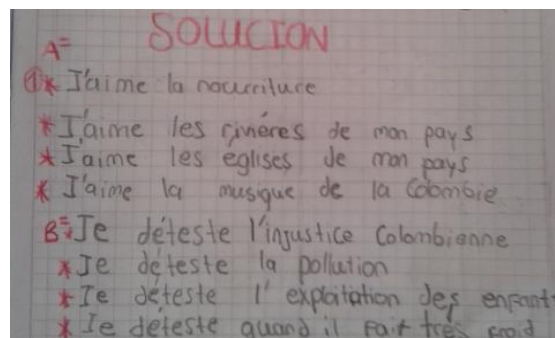 SOLUCION
A=
①* J'aime la nourriture
* J'aime les riviéres de mon pays
* J'aime les églises de mon pays
* J'aime la musique de la Colombie
B=* Je déteste l'injustice Colombienne
* Je déteste la pollution
* Je déteste l'exploitation des enfant
* Je déteste quand il fait trés froid